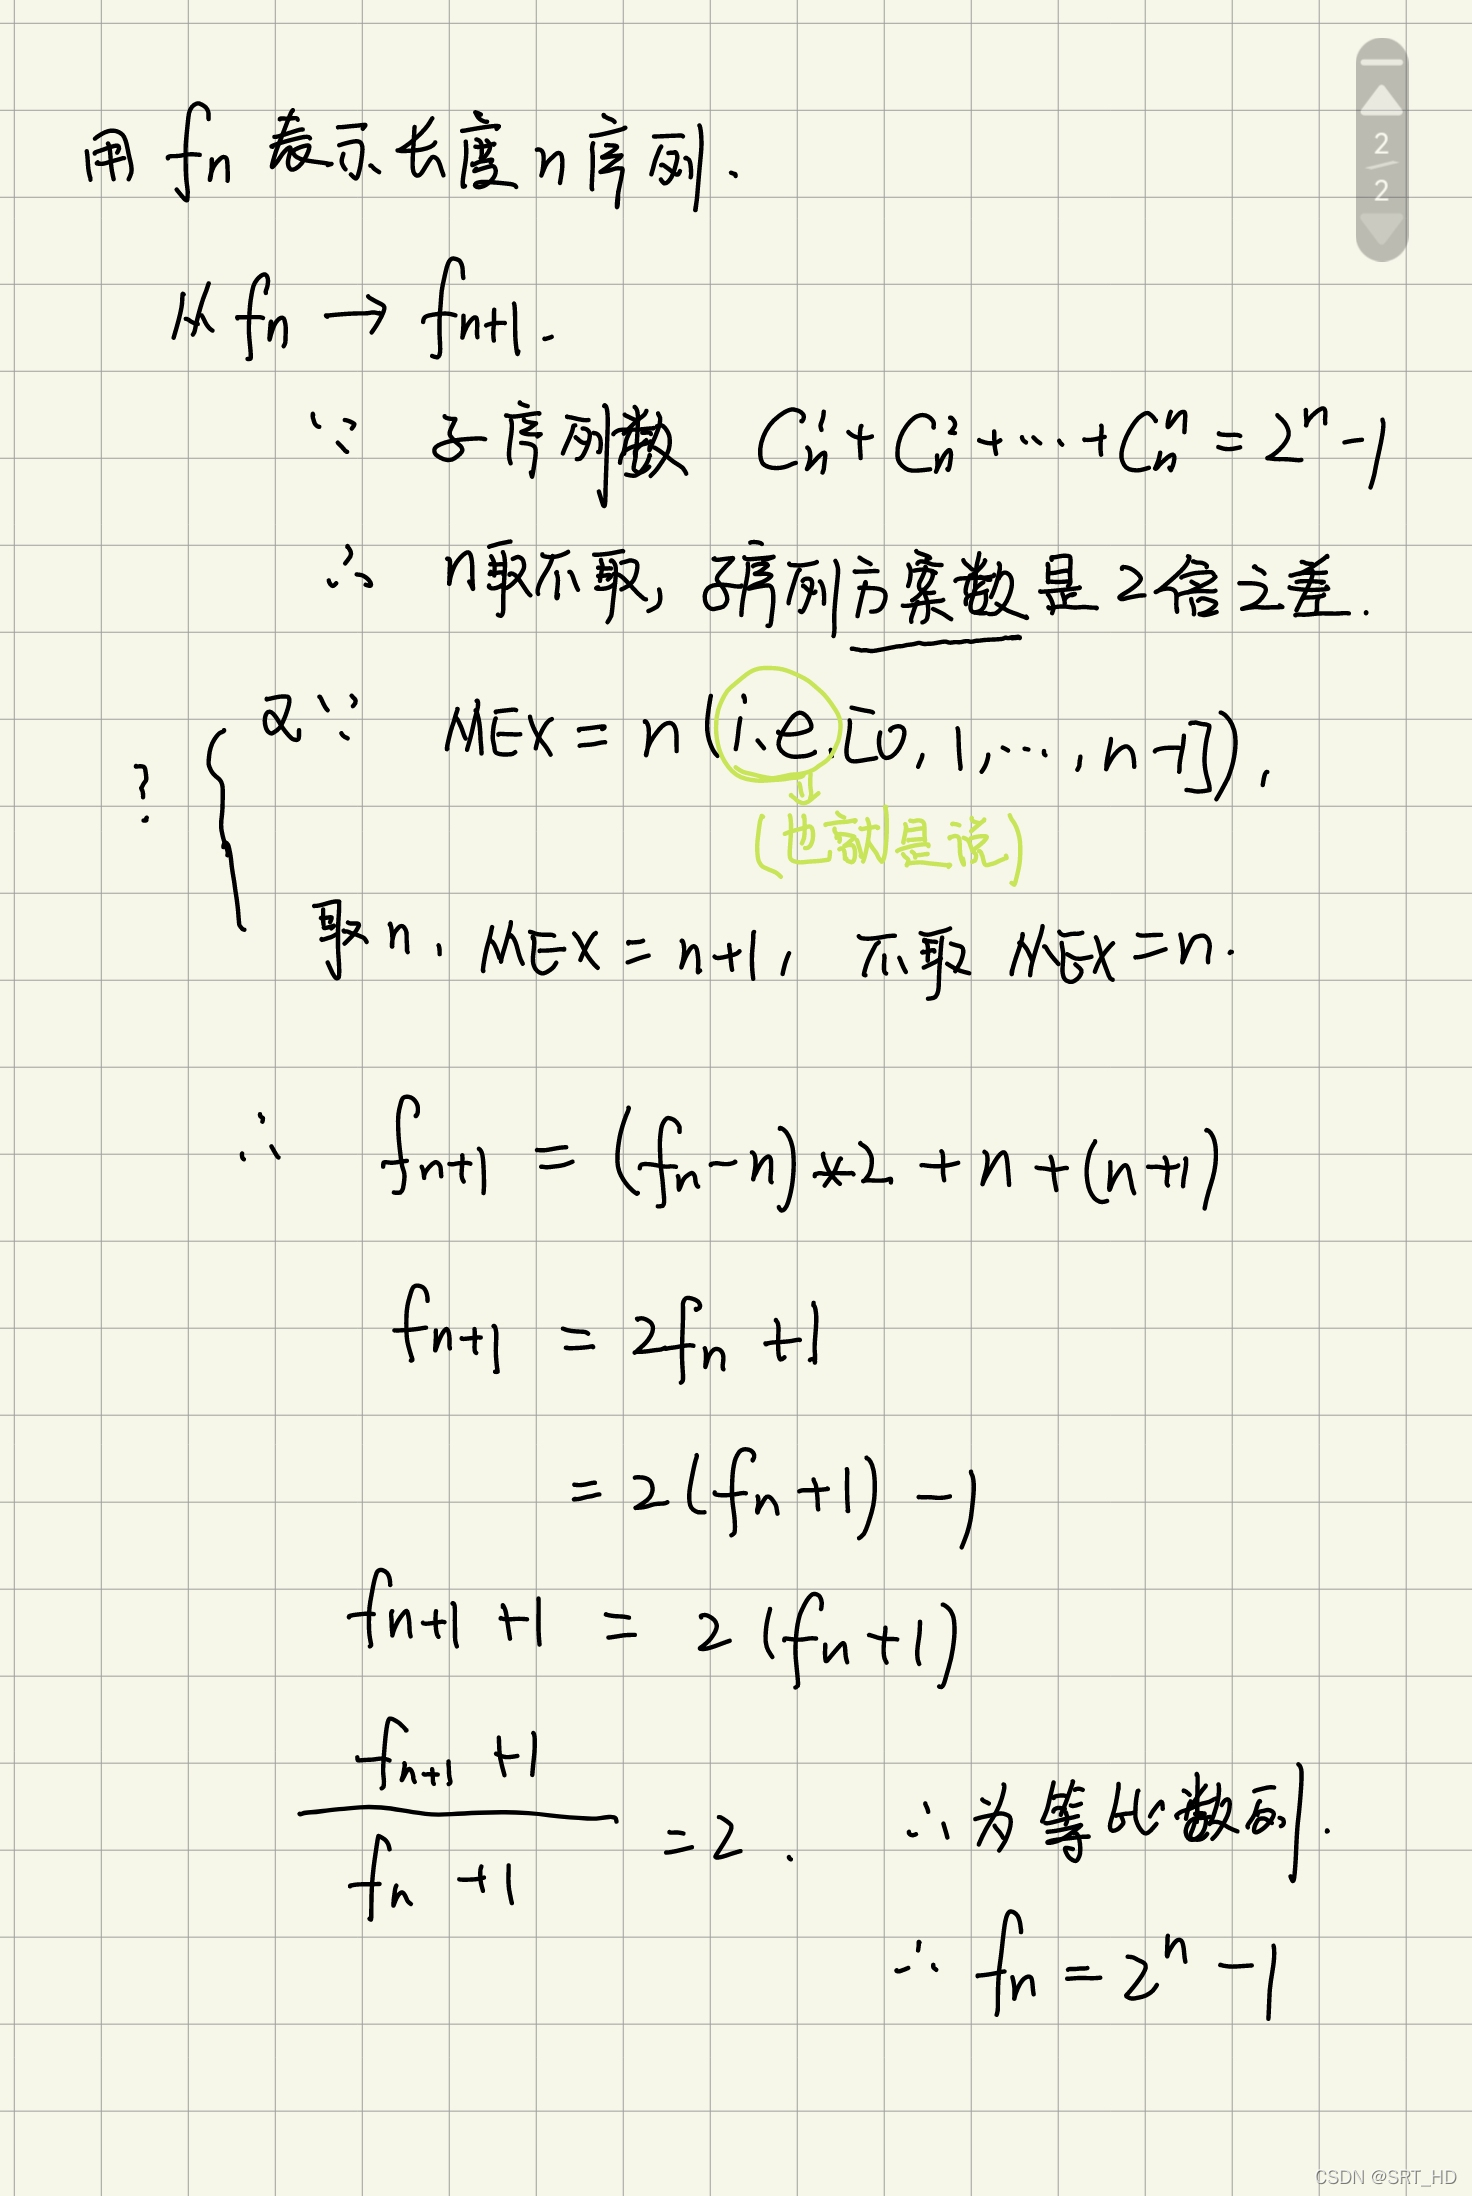 用 fn 表示长度 n 序列.
2
2
从 fn → fn+1.
∵ 子序列数 Cn¹ + Cn² + ⋯ + Cnⁿ = 2ⁿ - 1
∴ n取不取, 子序列方案数是2倍之差.
? 又∵ MEX = n (i.e. [0, 1, ⋯, n-1]),
(也就是说)
取n, MEX = n+1, 不取 MEX = n.
∴ fn+1 = (fn - n) * 2 + n + (n+1)
fn+1 = 2fn + 1
= 2(fn + 1) - 1
fn+1 + 1 = 2(fn + 1)
fn+1 + 1
fn + 1
= 2. ∴为等比数列.
∴ fn = 2ⁿ - 1
CSDN @SRT_HD